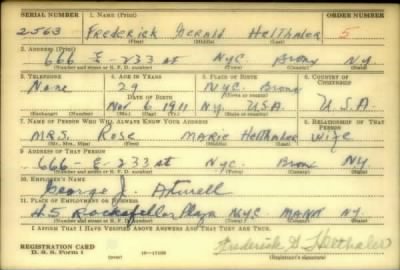 SERIAL NUMBER 1. NAME (Print) ORDER NUMBER
2563 Frederick Gerald Helthaler 5
(First) (Middle) (Last)
2. ADDRESS (Print)
666 E-233 st N.Y.C. Bronx N.Y.
(Number and street or R. F. D. number) (Town) (County) (State)
3. TELEPHONE 4. AGE IN YEARS 5. PLACE OF BIRTH 6. COUNTRY OF CITIZENSHIP
None 29 N.Y.C. Bronx
DATE OF BIRTH (Town or county)
Nov 6 1911 N.Y. U.S.A. U.S.A.
(Exchange) (Number) (Mo.) (Day) (Yr.) (State or country)
7. NAME OF PERSON WHO WILL ALWAYS KNOW YOUR ADDRESS 8. RELATIONSHIP OF THAT PERSON
MRS. Rose Marie Helthaler Wife
(Mr., Mrs., Miss) (First) (Middle) (Last)
9. ADDRESS OF THAT PERSON
666-E-233 st N.Y.C. Bronx NY
(Number and street or R. F. D. number) (Town) (County) (State)
10. EMPLOYER'S NAME
George J. Atwell
11. PLACE OF EMPLOYMENT OR BUSINESS
45 Rockafellar Plaza N.Y.C. MANN NY
(Number and street or R. F. D. number) (Town) (County) (State)
I AFFIRM THAT I HAVE VERIFIED ABOVE ANSWERS AND THAT THEY ARE TRUE.
REGISTRATION CARD
D. S. S. Form 1 Frederick G Helthaler
(Registrant's signature)